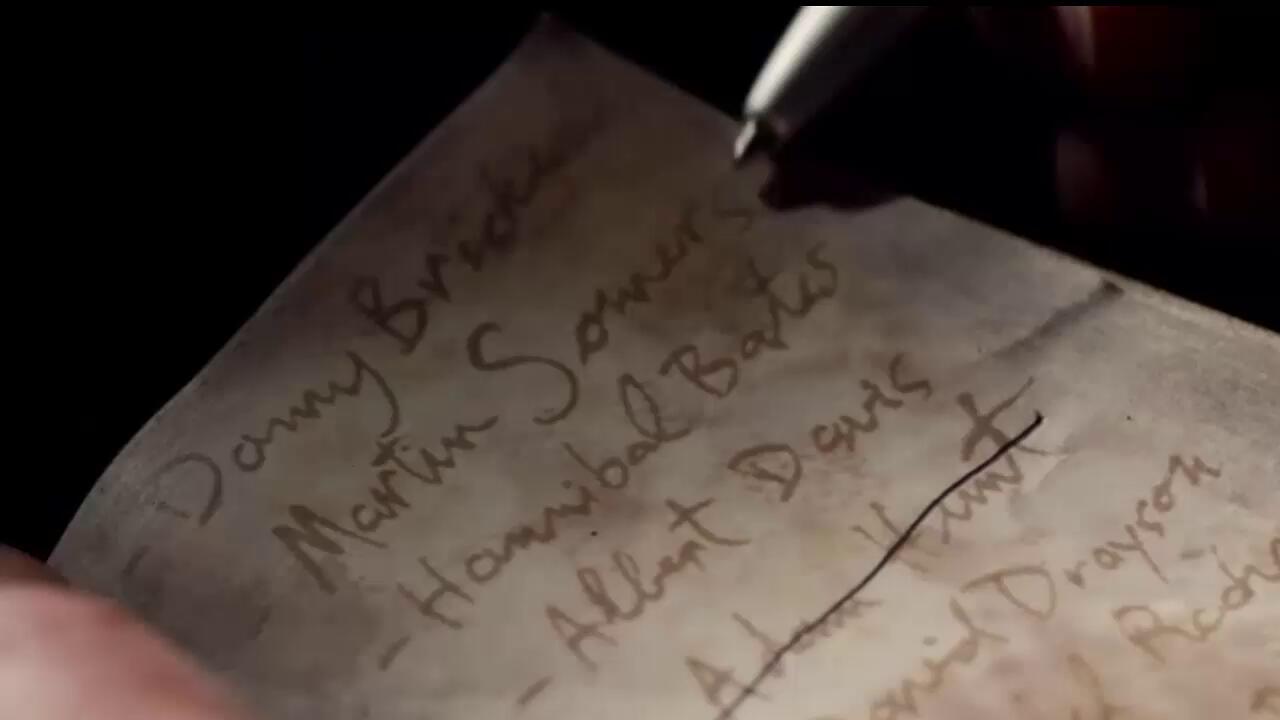 Danny Brickw
Martin Somers
- Hannibal Bates
- Albert Davis
Adam Hunt
David Drayson